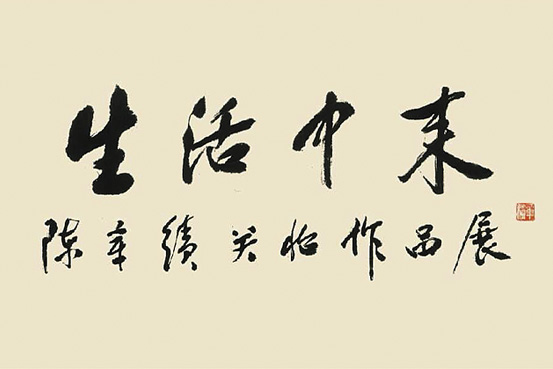 生活中来
陈章绩关怡作品展